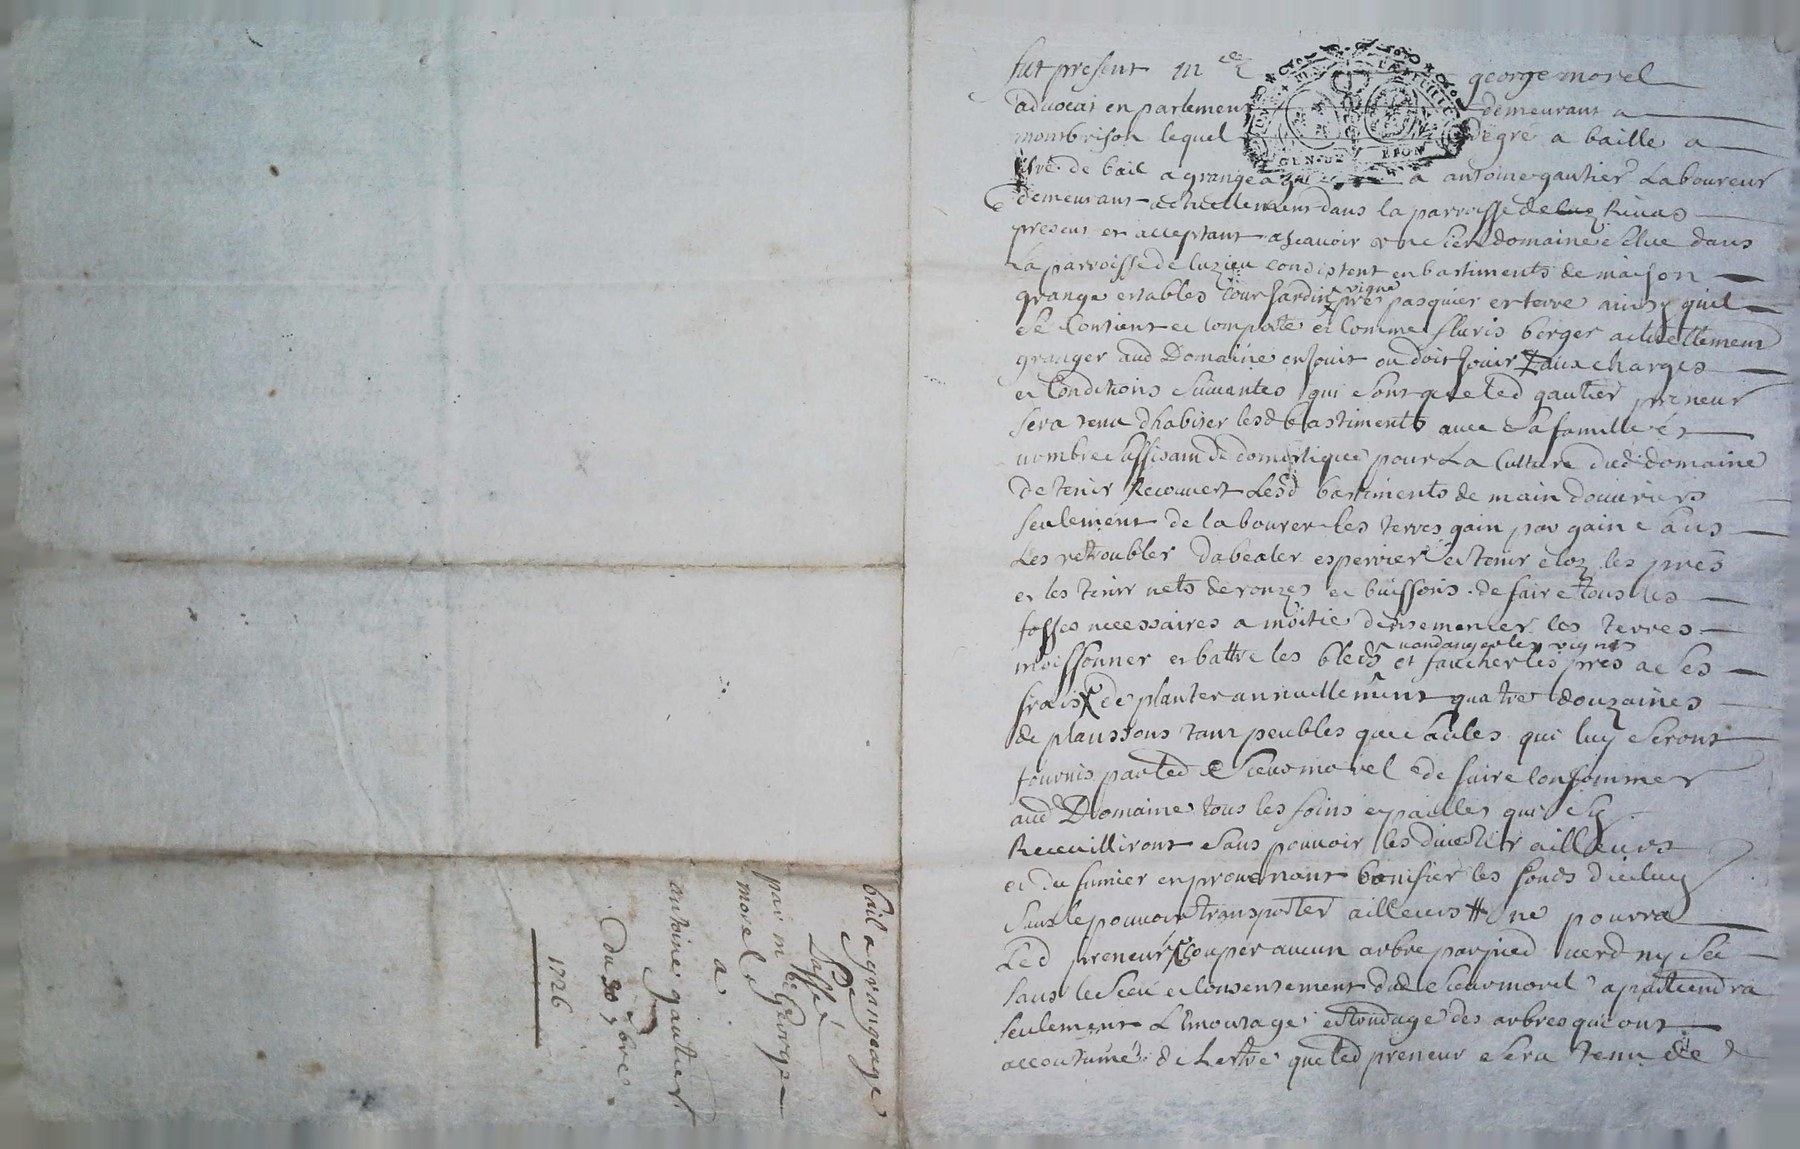 fut present me george morel
advocat en parlement demeurant a
montbrison lequel de gré a baillé a
tiltre de bail a grangeage a antoine gautier Laboureur
demeurant actuellement dans la parroisse de Rivas
present et acceptant ascavoir domaine situe dans
La parroisse de luzieu consistent en bastiments de maison
grange estables cour jardin vigne pré pasquier et terre ainsy quil
se Contient et comporte et comme fluris berger actuellement
granger aud Domaine en jouit ou doit jouir aux charges
et Conditions suivantes qui sont que led gautier preneur
sera tenu dhabiter lesd bastiments avec sa famille et
nombre suffisant de domestique pour La Culture dud domaine
de tenir Recouvert Lesd bastiments de main douvriers
seulement de labourer les terres gain par gain sans
Les retroubler dabealer espervier et tenir clos les prés
et les tenir nets de ronzes et buissons de faire tous les
fosses necessaires a moitié densemencer les terres
moissonner et battre les bleds vandanger les vignes et faucher les prés a ses
frais de planter annuellement quatre douzaines
de plansons tant peubles que saules qui luy seront
fournis par led Sieur morel de faire consommer
aud Domaine tous les foins et pailles qui sy
Receuilliront sans pouvoir les divertir ailleurs
et du fumier en provenant bonifier les fonds diceluy
sans le pouvoir transporter ailleurs ne pourra
Led preneur couper aucun arbre par pied verd ny sec
sans le sceu et consentement dud Sieur morel apartiendra
seulement Lemouzage et tondage des arbres qui ont
accoutumé de Lestre que led preneur sera tenu de
bail a grangeage
passé
par me George
morel
a
antoine gautier
Du 30 7bre
1726